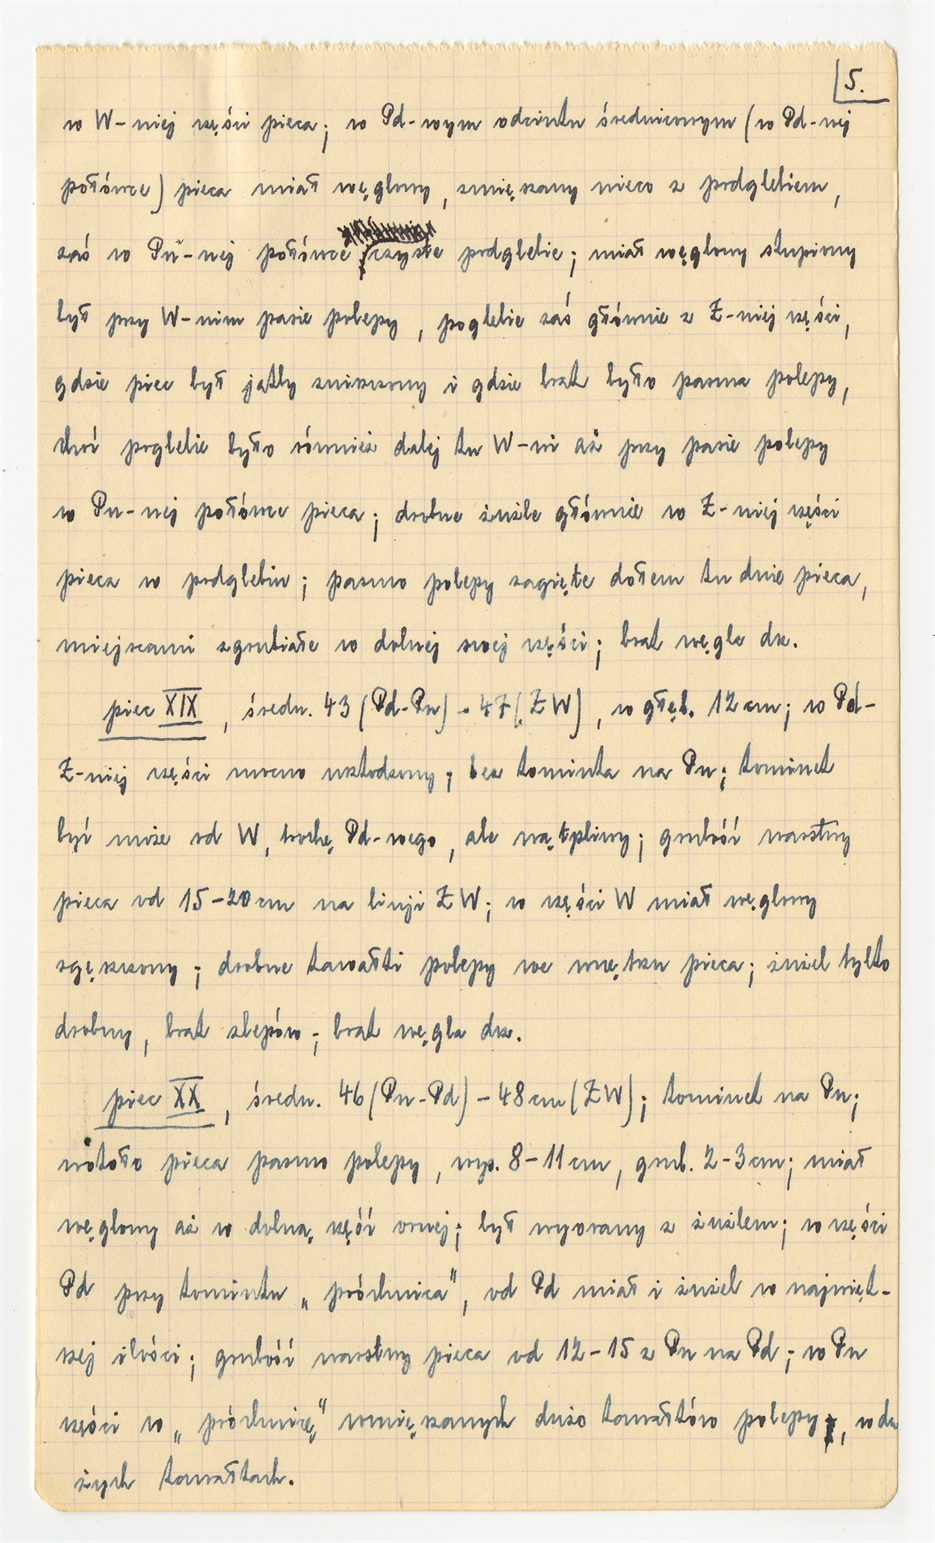 5.
w W-niej części pieca; w Pd-wym odcinku średnicowym (w Pd-nej
połówce) pieca miał węglowy, zmięszany nieco z podglebiem,
zaś w Pn-nej połówce czyste podglebie; miał węglowy skupiony
był przy W-nim pasie polepy, poglebie zaś głównie z Z-niej części,
gdzie piec był jakby zniszczony i gdzie brak było pasma polepy,
choć poglebie było również dalej ku W-wi aż przy pasie polepy
w Pn-nej połówce pieca; drobne żużle głównie w Z-niej części
pieca w podglebiu; pasmo polepy zagięte dołem ku dnie pieca,
miejscami zgrubiałe w dolnej swej części; brak węgla drz.
piec XIX, średn. 43 (Pd-Pn) - 47 (ZW), w głęb. 12 cm; w Pd-
Z-niej części mocno uszkodzony; bez kominka na Pn; kominek
być może od W, trochę Pd-wego, ale wątpliwy; grubość warstwy
pieca od 15-20 cm na linji ZW; w części W miał węglowy
zgęszczony; drobne kawałki polepy we wnętrzu pieca; żużel tylko
drobny, brak zlepów; brak węgla drz.
piec XX, średn. 46 (Pn-Pd) - 48 cm (ZW); kominek na Pn;
wokoło pieca pasmo polepy, wys. 8-11 cm, grub. 2-3 cm; miał
węglowy aż w dolną część ornej; był wyorany z żużlem; w części
Pd przy kominku „próchnica", od Pd miał i żużel w najwięk-
szej ilości; grubość warstwy pieca od 12-15 z Pn na Pd; w Pn
części w „próchnicę" wmięszanych dużo kawałków polepy, w du
żych kawałkach.